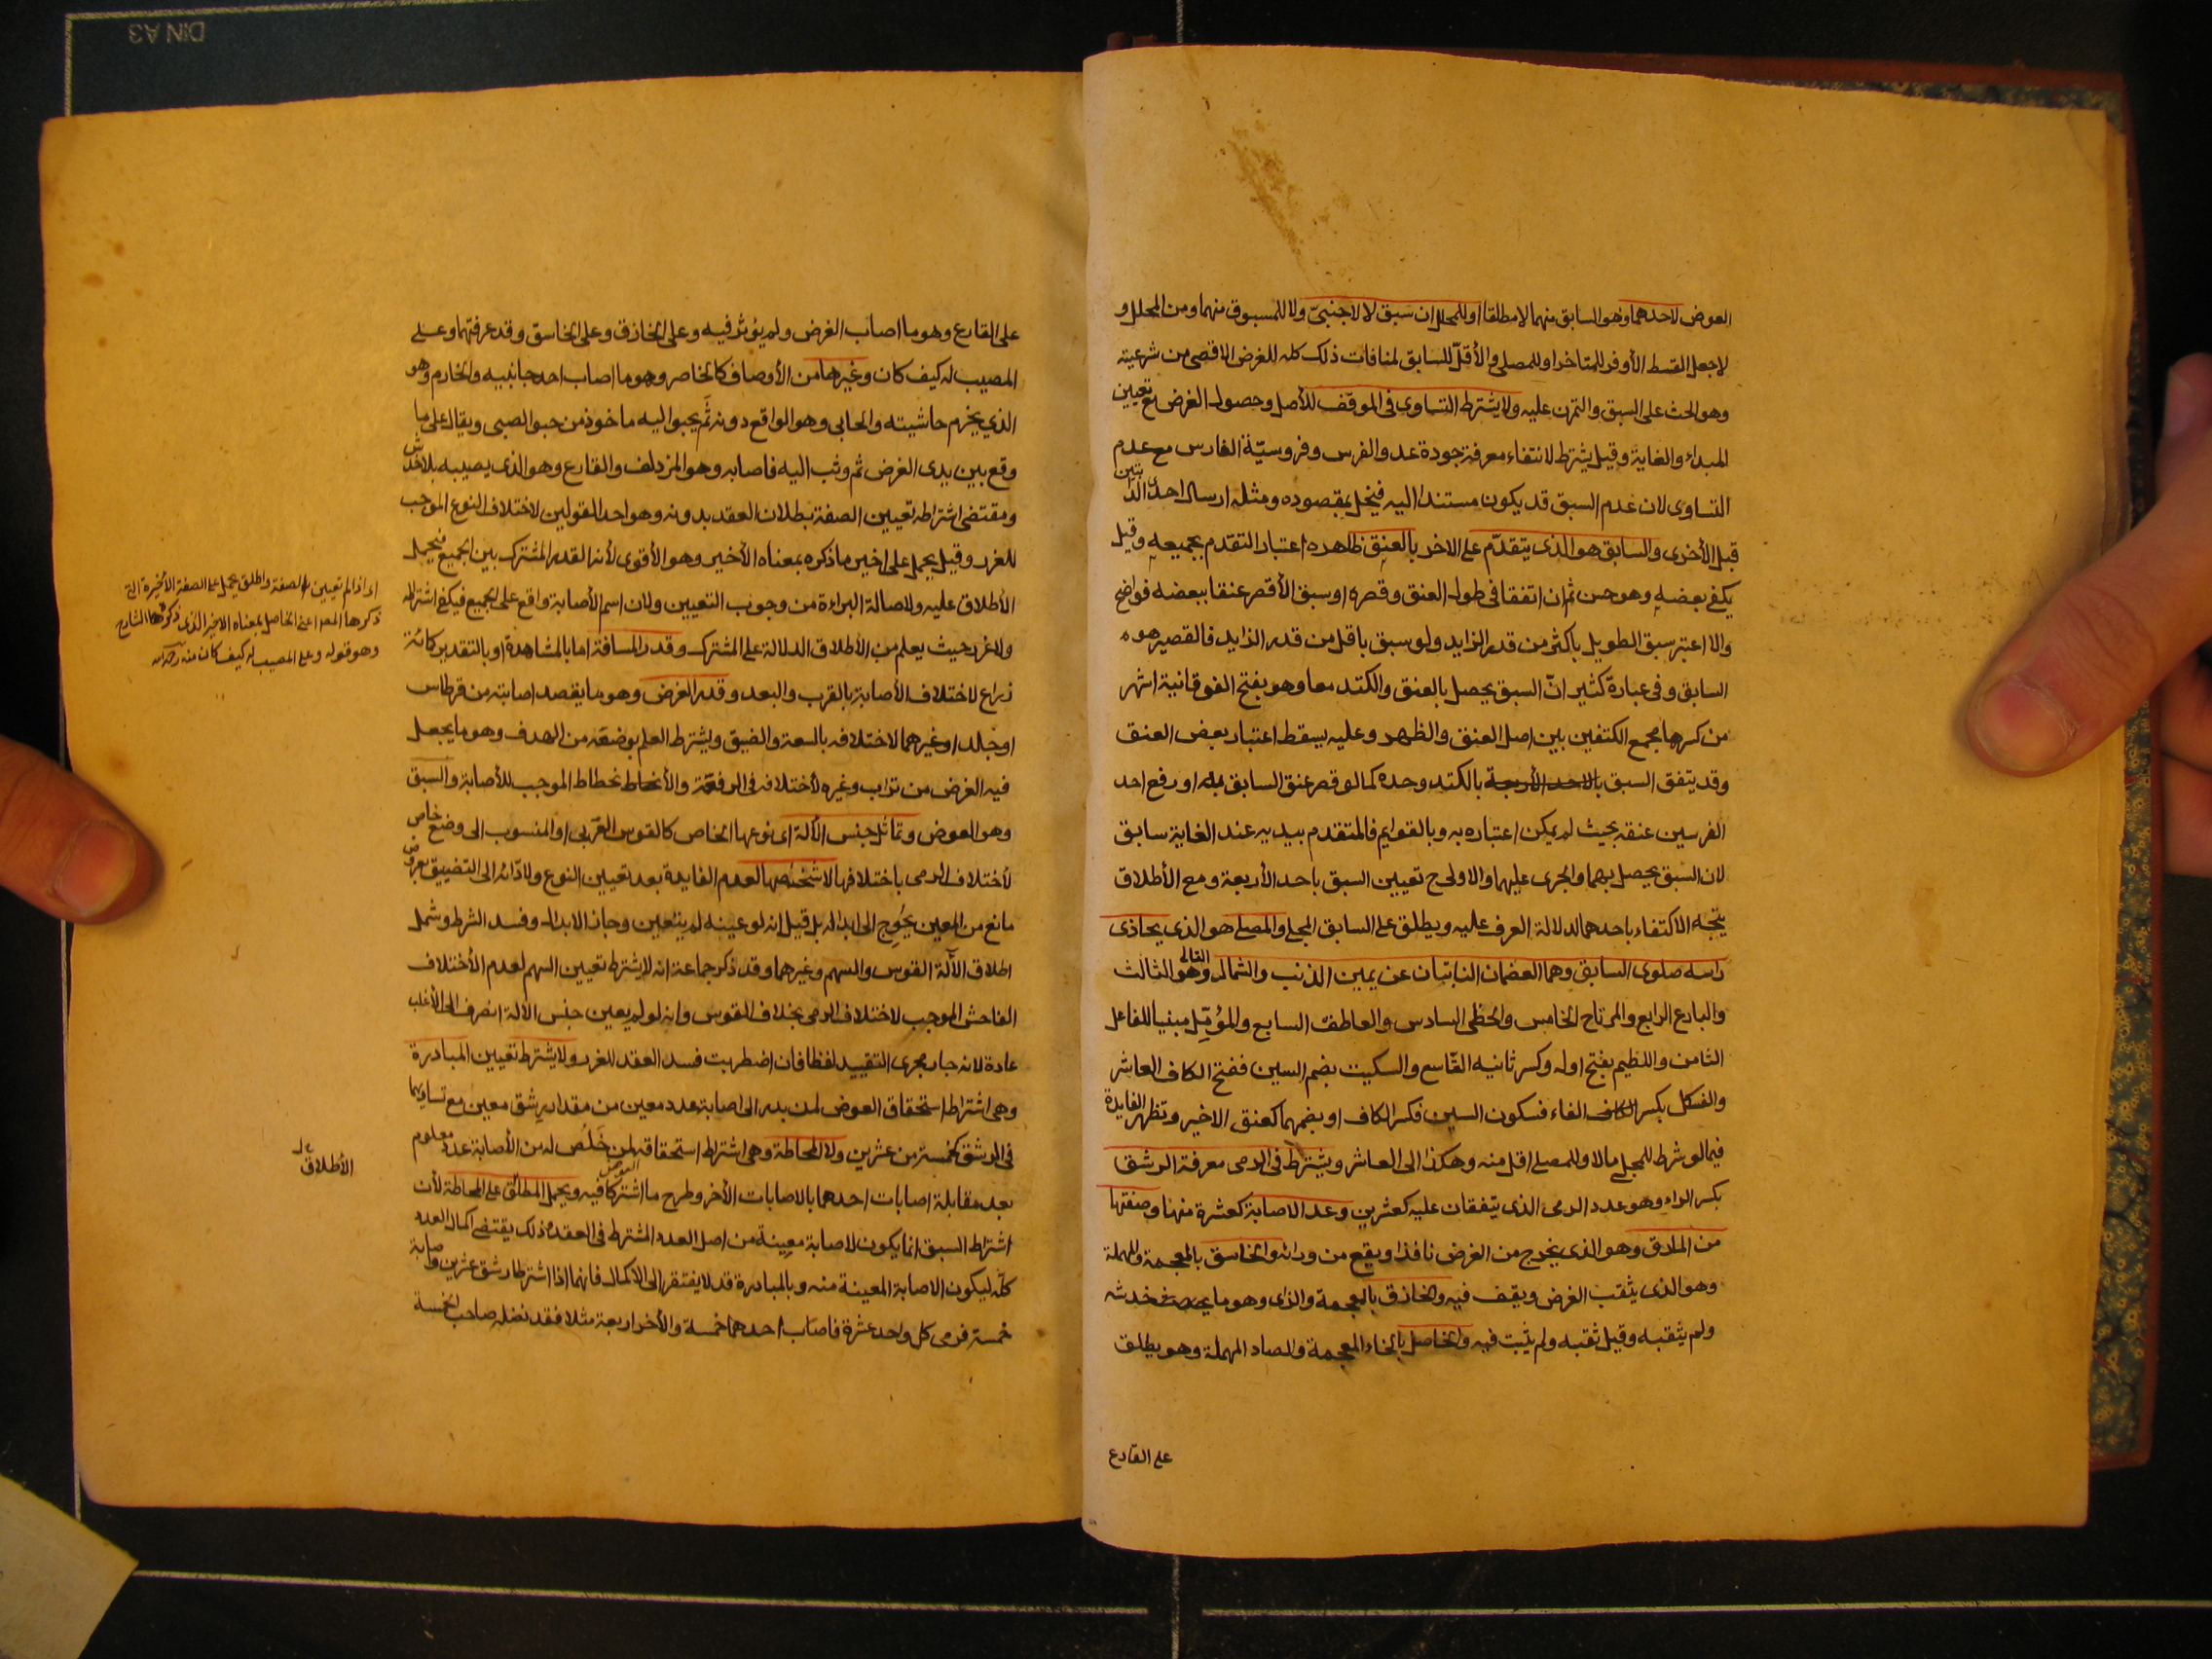 العوض لاحدهما وهو السابق منهما لا مطلقا او للمحلل ان سبق لا لاجنبيّ ولا للمسبوق منهما ومن المحلل و
لاجعل القسط الأوفر للمتاخر او للمصلي والأقلّ للسابق لمنافات ذلك كله للغرض الاقصى من شرعيته
وهو الحث على السبق والتمرن عليه ولا يشترط التساوى فى الموقف للأصل وحصول الغرض مع تعيين
المبداء والغاية وقيل يشترط لانتفاء معرفة جودة عدو الفرس وفروسيّة الفارس مع عدم
التساوى لان عدم السبق قد يكون مستندا اليه فيخل بمقصوده ومثله ارسال احدى الدابتين
قبل الأخرى والسابق هو الذى يتقدّم على الاخر بالعنق ظاهره اعتبار التقدم بجميعه وقيل
يكفى بعضه وهو حسن ثم ان اتفقا فى طول العنق وقصره او سبق الأقصر عنقا ببعضه فواضح
والا اعتبر سبق الطويل باكثر من قدر الزايد ولو سبق باقل من قدر الزايد فالقصير هو
السابق وفى عبارة كثير انّ السبق يحصل بالعنق والكتد معا وهو بفتح الفوقانية اشهر
من كسرها مجمع الكتفين بين اصل العنق والظهر وعليه يسقط اعتبار بعض العنق
وقد يتفق السبق بالاحد الأربعة بالكتد وحده كما لو قصر عنق السابق به او رفع احد
الفرسين عنقه بحيث لم يمكن اعتباره به وبالقوايم فالمتقدم بيديه عند الغاية سابق
لان السبق يحصل بهما والجرى عليهما والاولى ح تعيين السبق باحد الأربعة ومع الأطلاق
يتجه الاكتفاء باحدهما لدلالة العرف عليه ويطلق على السابق المجلى والمصلى هو الذى يحاذى
راسه صلوى السابق وهما العضمان النابتان عن يمين الذنب والشمال والتالى وهو الثالث
والبارع الرابع والمرتاح الخامس والحظى السادس والعاطف السابع والمؤمّل مبنيا للفاعل
الثامن واللطيم بفتح اوله وكسر ثانيه التاسع والسكيت بضم السين ففتح الكاف العاشر
والفسكل بكسر الكاف الفاء فسكون السين فكسر الكاف او بضمهما كعنق الاخير وتظهر الفايدة
فيما لو شرط للمجلى مالا وللمصلى اقل منه وهكذا الى العاشر ويشترط فى الرمى معرفة الرشق
بكسر الراء وهو عدد الرمى الذى يتفقان عليه كعشرين وعدد الاصابة كعشرة منها وصفتها
من المارق وهو الذى يخرج من الغرض نافذا ويقع من ورائه والخاسق بالمعجمة والمهملة
وهو الذى يثقب الغرض ويقف فيه والخازق بالمعجمة والزاى وهو ما خدشه
ولم يثقبه وقيل ثقبه ولم يثبت فيه والخاصل بالخاء المعجمة والصاد المهملة وهو يطلق
على القارع
على القارع وهو ما اصاب الغرض ولم يؤثر فيه وعلى الخازق وعلى الخاسق وقد عرفتهما وعلى
المصيب له كيف كان وغيرها من الأوصاف كالخاصر وهو ما اصاب احد جانبيه والخارم وهو
الذي يخرم حاشيته والحابى وهو الواقع دونه ثَم يحبوا اليه ماخوذ من حبو الصبى ويقال على ما
وقع بين يدى الغرض ثم وثب اليه فاصابه وهو المزدلف والقارع وهو الذى يصيبه بلا خدش
ومقتضى اشتراطه تعيين الصفة بطلان العقد بدونه وهو احد القولين لاختلاف النوع الموجب
للغرر وقيل يحمل على اخير ما ذكره بمعناه الأخير وهو الأقوى لأنه القدر المشترك بين الجميع فيحمل
الأطلاق عليه ولاصالة البراءة من وجوب التعيين ولان اسم الأصابة واقع على الجميع فيكفى اشتراطه
ولا غرر حيث يعلم من الأطلاق الدلالة على المشترك وقدر المسافة اما بالمشاهدة او بالتقدير كمائة
ذراع لاختلاف الأصابة بالقرب والبعد وقدر الغرض وهو ما يقصد اصابته من قرطاس
او جلد او غيرهما لاختلافه بالسعة والضيق ويشترط العلم بوضعه من الهدف وهو ما يجعل
فيه الغرض من تراب وغيره لأختلافه فى الرفعة والأنحطاط الموجب للأصابة والسبق
وهو العوض وتماثل جنس الألة اى نوعها الخاص كالقوس العربى او المنسوب الى وضع خاص
لأختلاف الرمى باختلافها لا شخصها لعدم الفايدة بعد تعيين النوع ولأدائه الى التضييق بعروض
مانع من المعين يحوج الى ابداله بل قيل انه لو عينه لم يتعين وجاز الابدال وفسد الشرط وشمل
اطلاق الآلة القوس والسهم وغيرهما وقد ذكر جماعة انه لا يشترط تعيين السهم لعدم الأختلاف
الفاحش الموجب لاختلاف الرمى بخلاف القوس وانه لو لم يعين جنس الالة انصرف الى الأغلب
عادة لانه جار مجرى التقييد لفظا فان اضطربت فسد العقد للغرر ولا يشترط تعيين المبادرة
وهى اشتراط استحقاق العوض لمن بدر الى اصابة عدد معين من مقدار رشق معين مع تساويهما
فى الرشق كخمسة من عشرين ولا المحاطة وهى اشتراط استحقاقه لمن خَلُص له من الأصابة عدد معلوم
بعد مقابلة اصابات احدهما بالاصابات الأخر وطرح ما اشتركا فيه ويحمل المطلق على المحاطة لأن
اشتراط السبق انما يكون لاصابة معينة من اصل العدد المشترط فى العقد وذلك يقتضى اكمال العدد
كلّه ليكون الاصابة المعينة منه وبالمبادرة قد لا يفتقر الى الاكمال فانهما اذا اشترطا رشق عشرين واصابة
خمسة فرمى كل واحد عشرة فاصاب احدهما خمسة والأخر اربعة مثلا فقد نضله صاحب الخمسة
اى اذا لم تعيين الصفة واطلق يحمل على الصفة الأخيرة التى
ذكرها المصـ اعنى الخاصل بمعناه الاخير الذى ذكرها الشارح
وهو قوله وعلى المصيب له كيف كان منه
العوض
الأطلاق